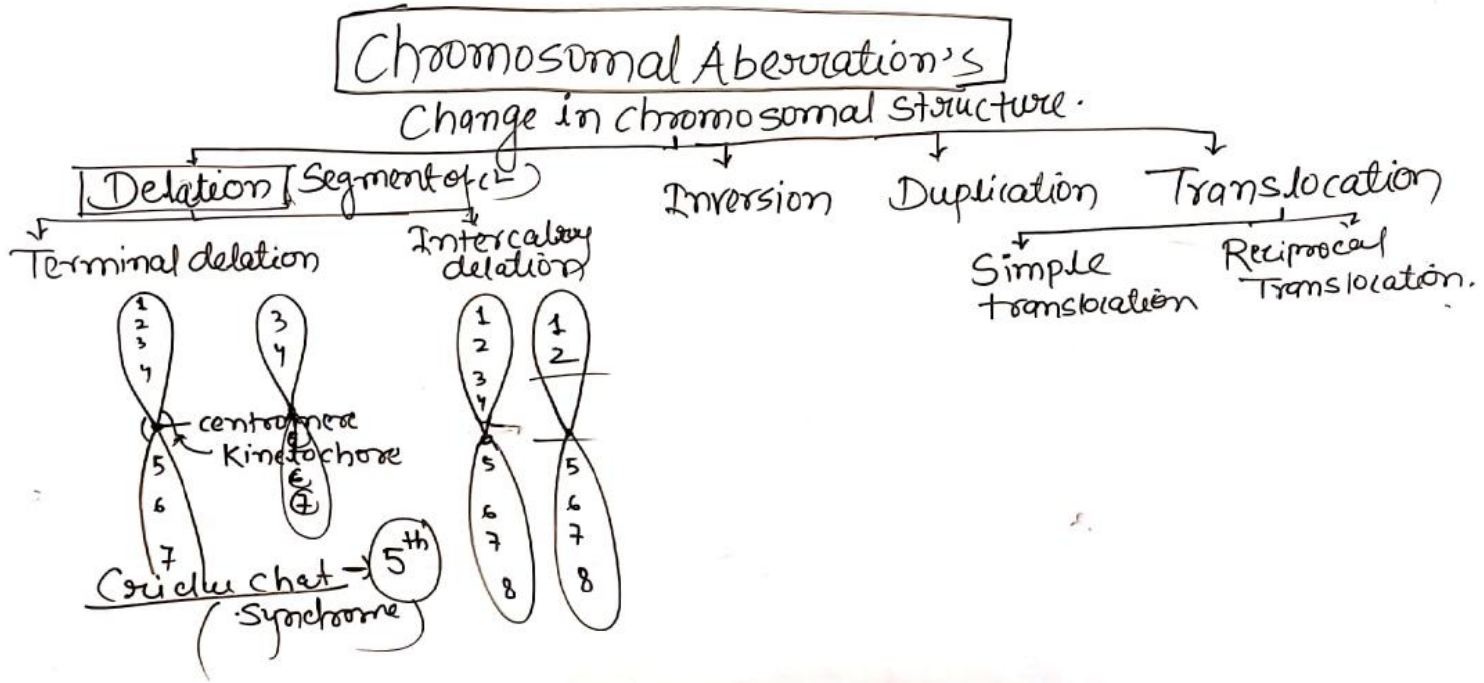 Chromosomal Aberration's
Change in chromosomal structure.
Delation (Segment of
Inversion
Duplication
Translocation
Terminal delation
Intercalary
delation
Simple
translocation
Reciprocal
Translocation.
1
2
3
4
5
6
7
centromere
Kinetochore
3
4
5
6
7
1
2
3
4
5
6
7
8
1
2
5
6
7
8
Cridu chat → 5th
(Synchrome)